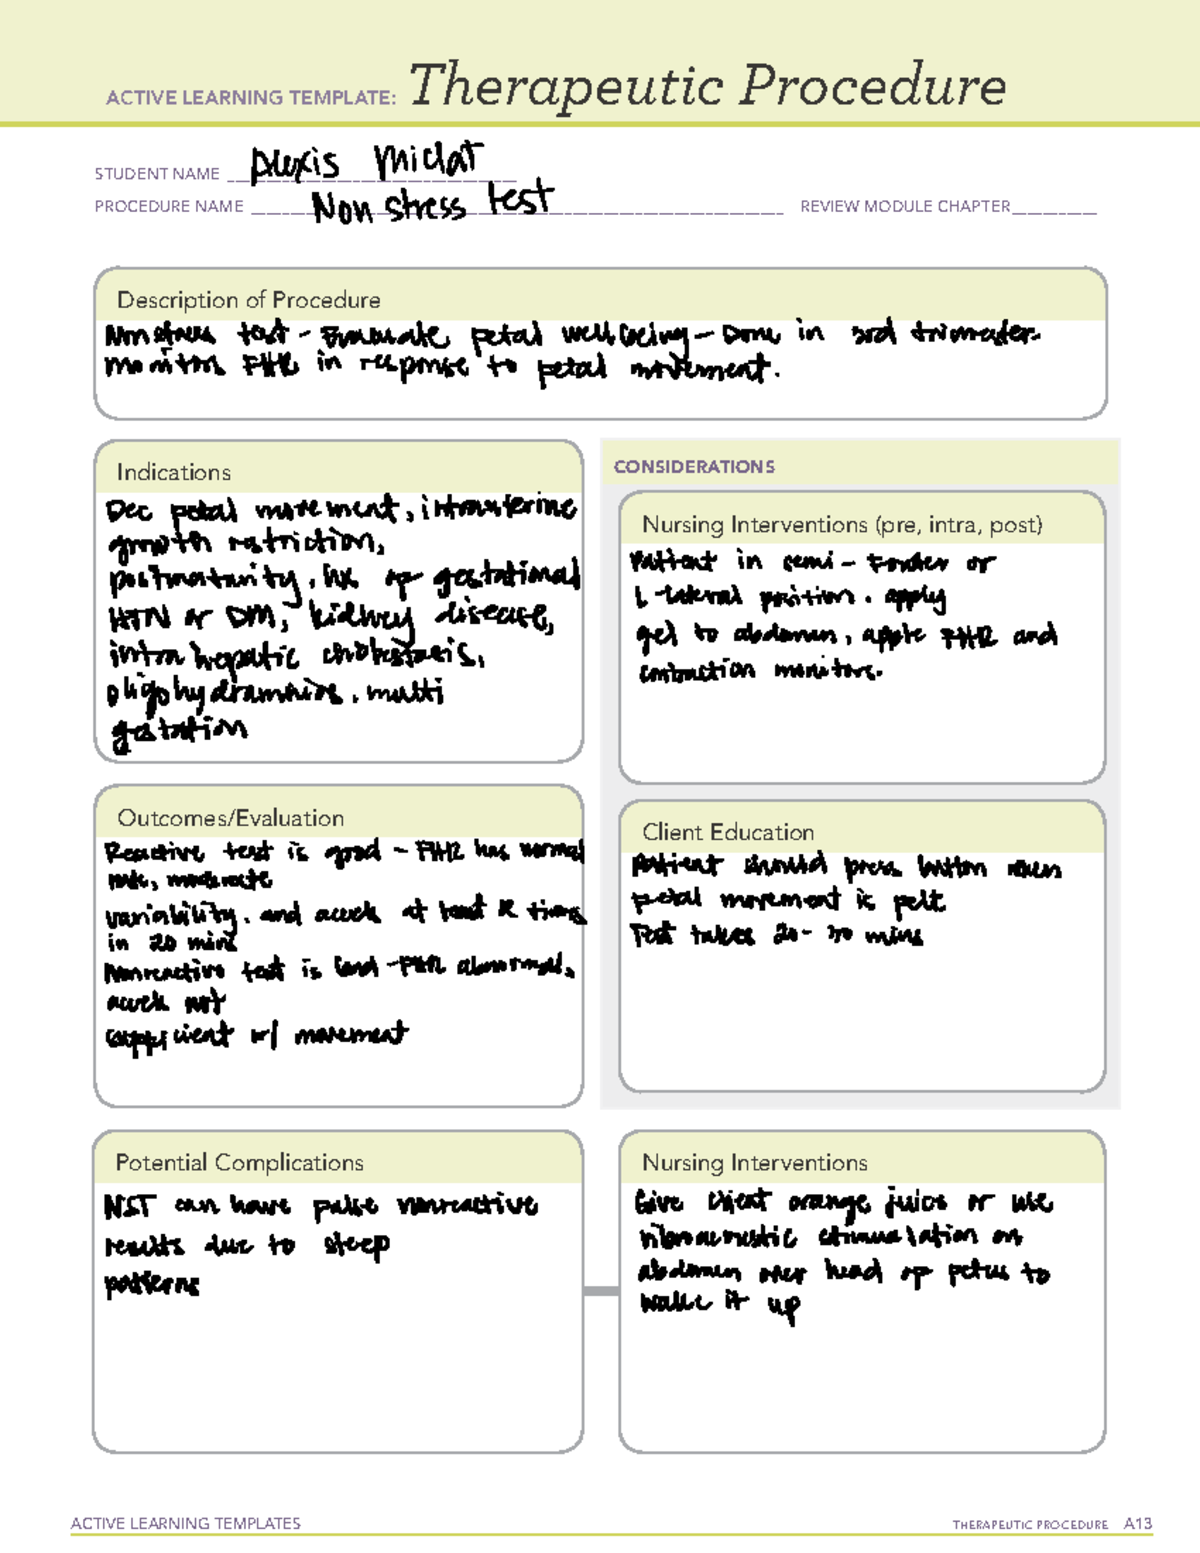 ACTIVE LEARNING TEMPLATE: Therapeutic Procedure
STUDENT NAME Alexis Miclat
PROCEDURE NAME Non stress test REVIEW MODULE CHAPTER
Description of Procedure
Nonstress test - Evaluate fetal wellbeing - Done in 3rd trimester.
monitor FHR in response to fetal movement.
Indications
Dec fetal movement, intrauterine
growth restriction,
postmaturity, hx of gestational
HTN or DM, kidney disease,
intra hepatic cholestasis,
oligohydramnios, multi
gestation
CONSIDERATIONS
Nursing Interventions (pre, intra, post)
Patient in semi-Fowler or
L-lateral position. apply
gel to abdomen, apply FHR and
contraction monitors.
Outcomes/Evaluation
Reactive test is good - FHR has normal
rate, moderate
variability, and accels at least 2 times
in 20 mins
Nonreactive test is bad - FHR abnormal,
accels not
sufficient w/ movement
Client Education
Patient should press button when
fetal movement is felt
Test takes 20-30 mins
Potential Complications
NST can have false nonreactive
results due to sleep
patterns
Nursing Interventions
Give client orange juice or use
vibroacoustic stimulation on
abdomen over head of fetus to
wake it up
ACTIVE LEARNING TEMPLATES
THERAPEUTIC PROCEDURE A13